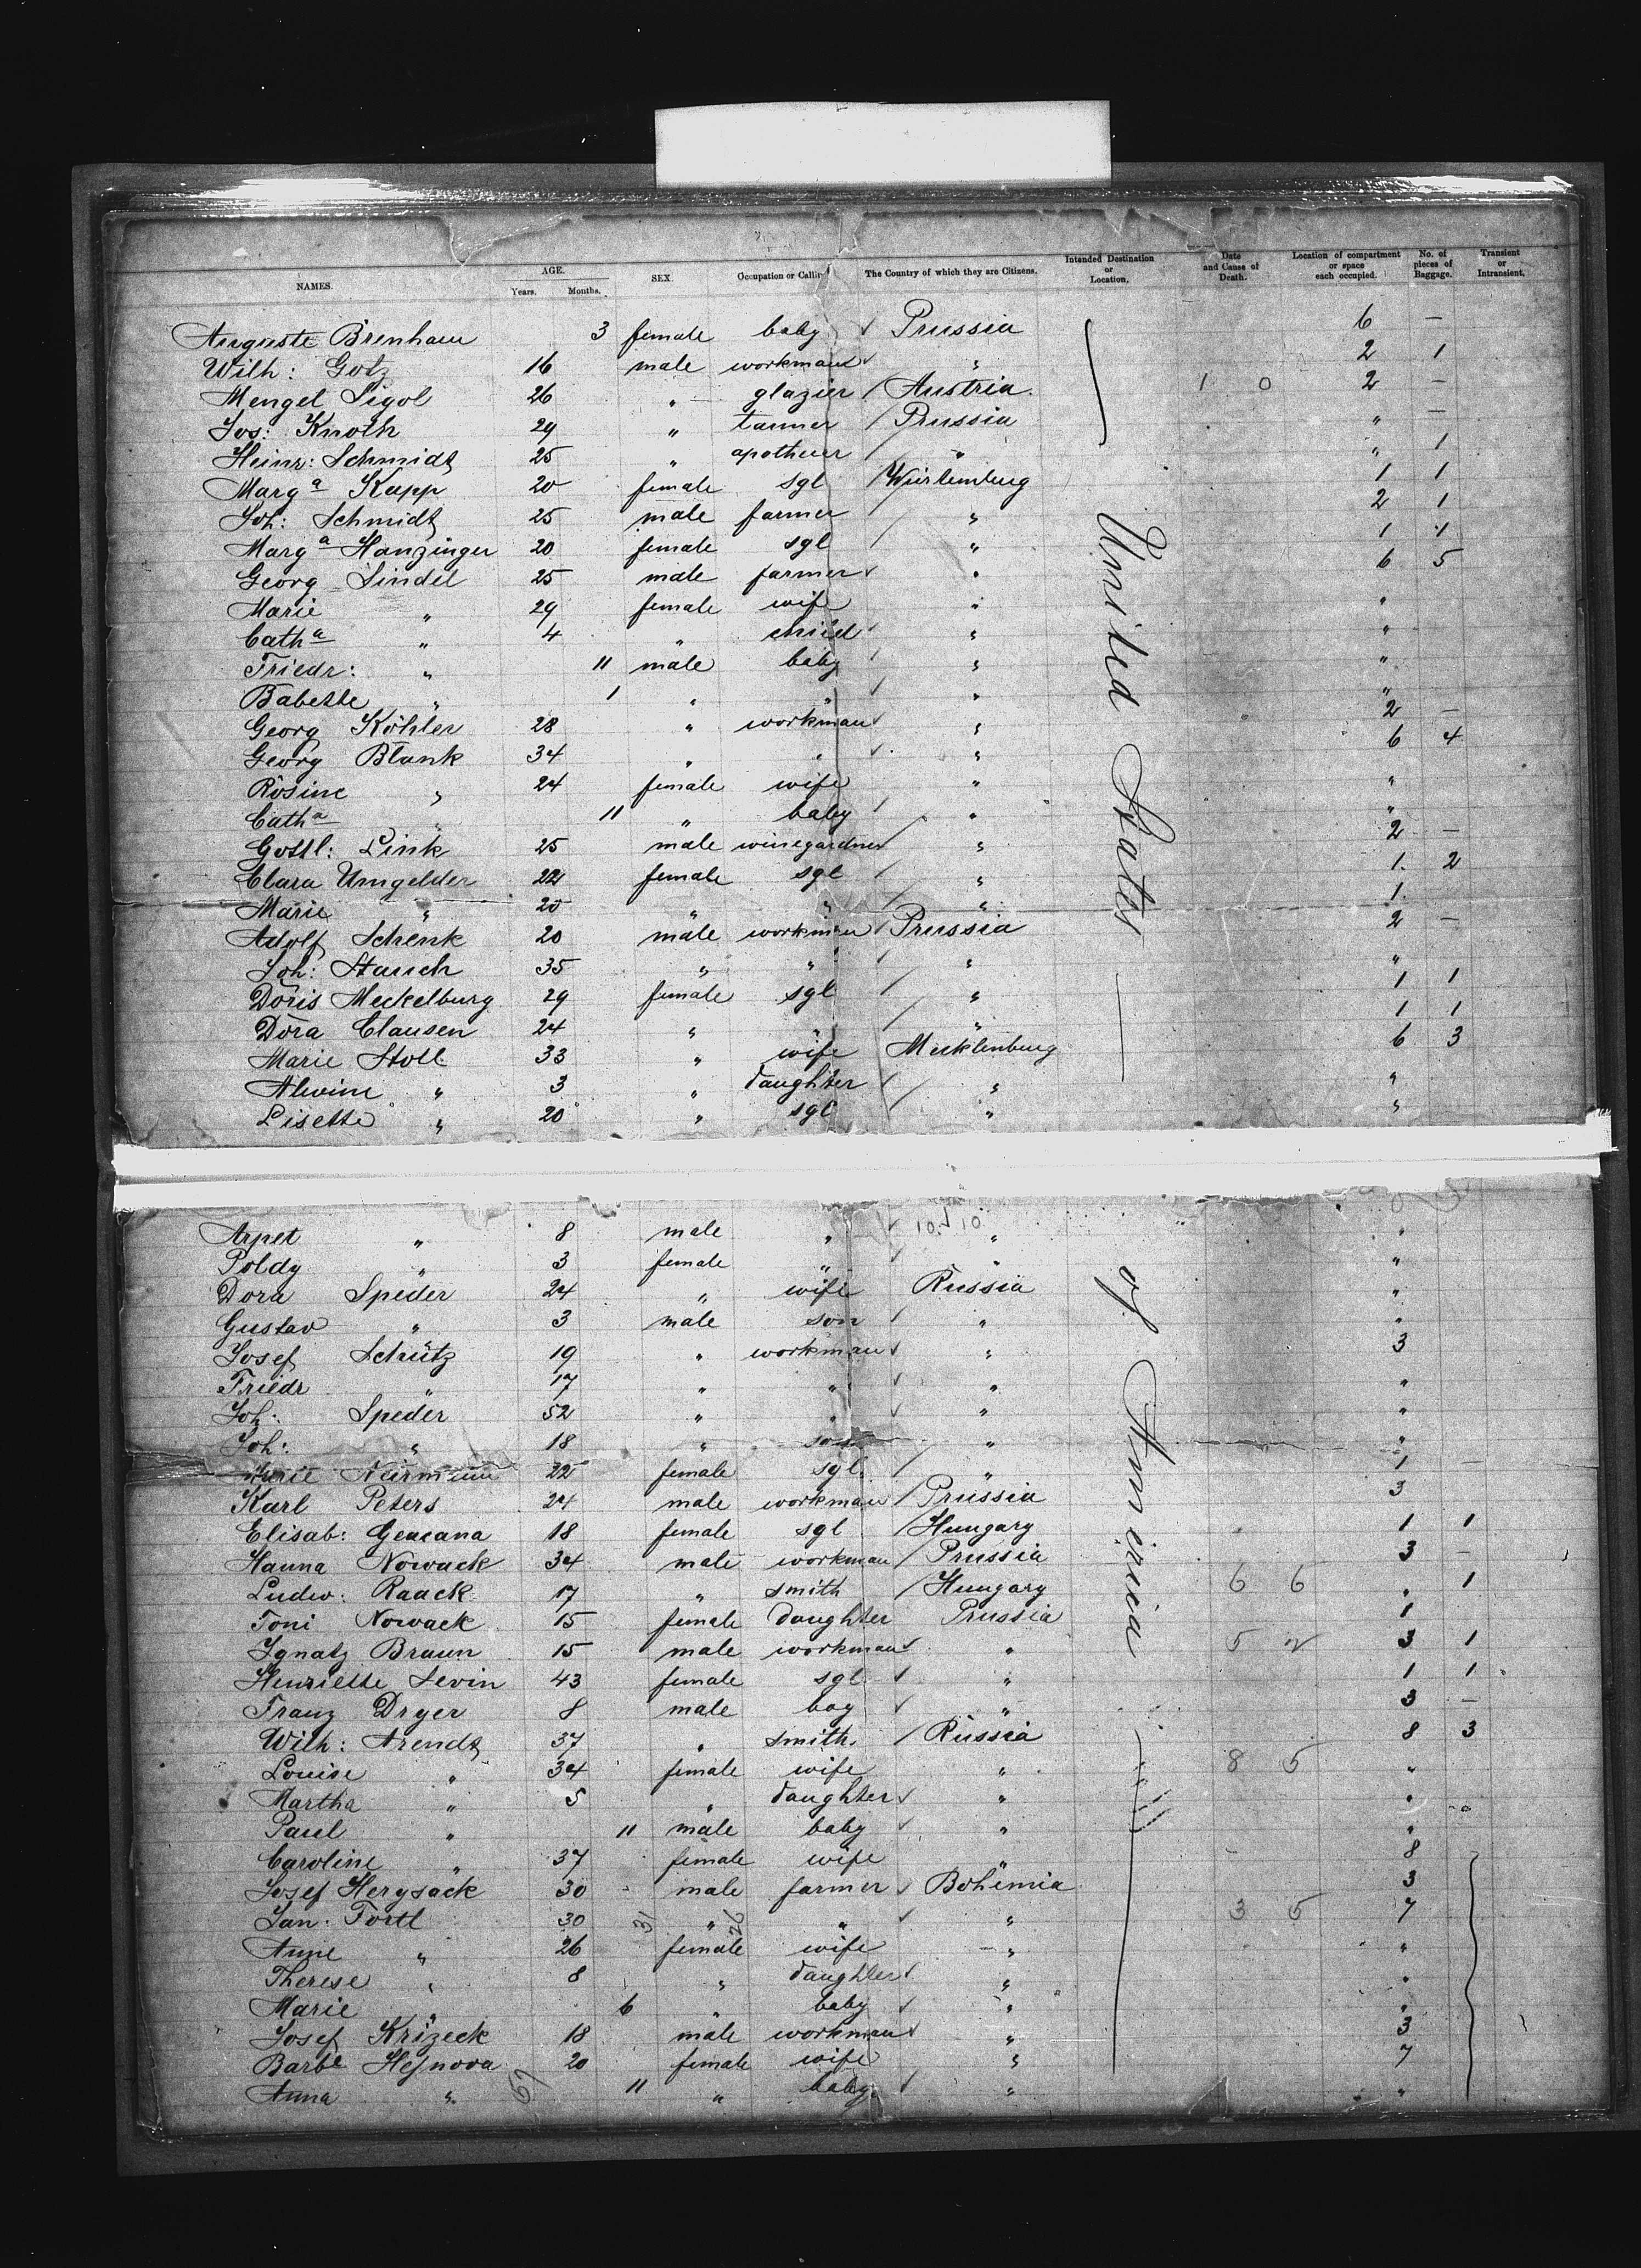 NAMES. AGE. Years. Months. SEX. Occupation or Calling The Country of which they are Citizens. Intanded Destination or Location. Date and Cause of Death. Location of compartment or space each occupied. No. of pieces of Baggage. Transient or Intransient.
Auguste Brenham 3 female baby ✓ Prussia 6 —
Wilh: Gotz 16 male workman ✓ " 2 1
Mengel Sigol 26 " glazier / Austria 1 0 2 —
Jos: Knoth 29 " tanner / Prussia " —
Heinr: Schmidt 25 " / " " 1
Marg a Kapp 20 female sgl / Würtemburg 1 1
Joh: Schmidt 25 male farmer / " 2 1
Marg a Hanzinger 20 female sgl / " 1 1
Georg Sindel 25 male farmer ✓ " 6 5
Marie " 29 female wife " "
Cath a " 4 " child ✓ " "
Friedr: " 11 male baby / " "
Babette " 1 " " ✓ " "
Georg Köhler 28 " workman ✓ " 2 —
Georg Blank 34 " " ✓ " 6 4
Rosine " 24 female wife " "
Cath a " 11 " baby / " "
Gottl: Link 25 male winegardner / " 2 —
Clara Umgelder 22 female sgl / " 1. 2
Marie " 20 " " / " 1.
Adolf Schenk 20 male workman / Prussia 2 —
Joh: Stauch 35 " " / " "
Doris Meckelburg 29 female sgl / " 1 1
Dora Clausen 24 " " / " 1 1
Marie Stoll 33 " wife Mecklenburg 6 3
Alwine " 3 " daughter / " "
Lisette " 20 " sgl " "
United States
Arpet " 8 male " ✓ 10 10 " "
Poldy " 3 female " ✓ " "
Dora Speder 24 " wife Russia "
Gustav " 3 male son / " "
Josef Schütz 19 " workman ✓ " 3
Friedr " 17 " " ✓ " "
Joh: Speder 52 " " ✓ " "
Joh: " 18 " son / " "
22 female sgl. / " 1 —
Karl Peters 24 male workman / Prussia 3
Elisab: Geacana 18 female sgl / Hungary 1 1
Hanna Nowack 34 male workman / Prussia 3 —
Ludw: Raack 17 " smith / Hungary 6 6 " 1
Toni Nowack 15 female daughter Prussia 1
Ignatz Braun 15 male workman ✓ " 5 2 3 1
Henriette Levin 43 female sgl ✓ " 1 1
Franz Dryer 8 male boy ✓ " 3 —
Wilh: Arendt 37 " smith / Russia 8 3
Louise " 34 female wife " 8 5 "
Martha " 5 " daughter ✓ " "
Paul " 11 male baby ✓ " "
Caroline " 37 female wife " 8
Josef Herysack 30 male farmer ✓ Bohemia 3
Jan: Fortl 30 31 " 26 " ✓ " 3 5 7
Anne " 26 female wife " "
Therese " 8 " daughter ✓ " "
Marie " 6 " baby ✓ " "
Josef Krizeck 18 male workman ✓ " 3
Barbe Hejnova 20 female wife " 7
Anna " 67 11 " baby ✓ " "
of America